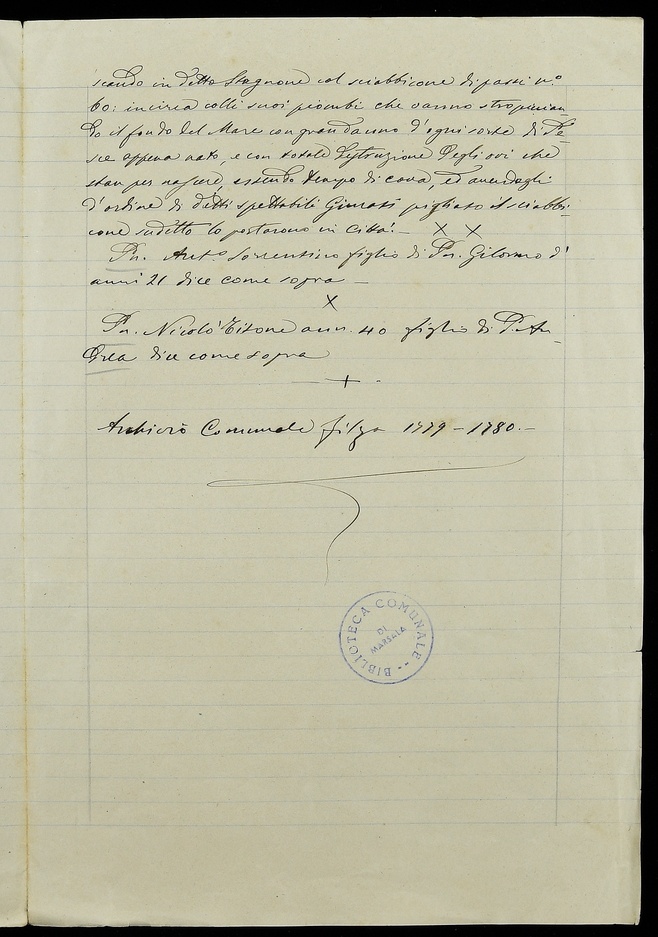 scando in detto Stagnone col sciabbicone di passi n.º
60: incirca colli suoi piombi che vanno stropician-
do il fondo del Mare con gran danno d'ogni sorte di Pe-
sce appena nato, e con totale destruzione degli ovi che
stan per nascere, essendo tempo di cova, ed avendogli
d'ordine di detti spettabili Giurati pigliato il sciabbi-
cone sudetto lo portarono in Città. — X X
Pn. Ant.º Sorrentino figlio di Pn. Gilormo d'
anni 21 dice come sopra —
X
Pn. Nicolò Titone ann. 40 figlio di P. An-
drea dice come sopra
— + -
Archivio Comunale filza 1779 - 1780. —
BIBLIOTECA COMUNALE
DI
MARSALA